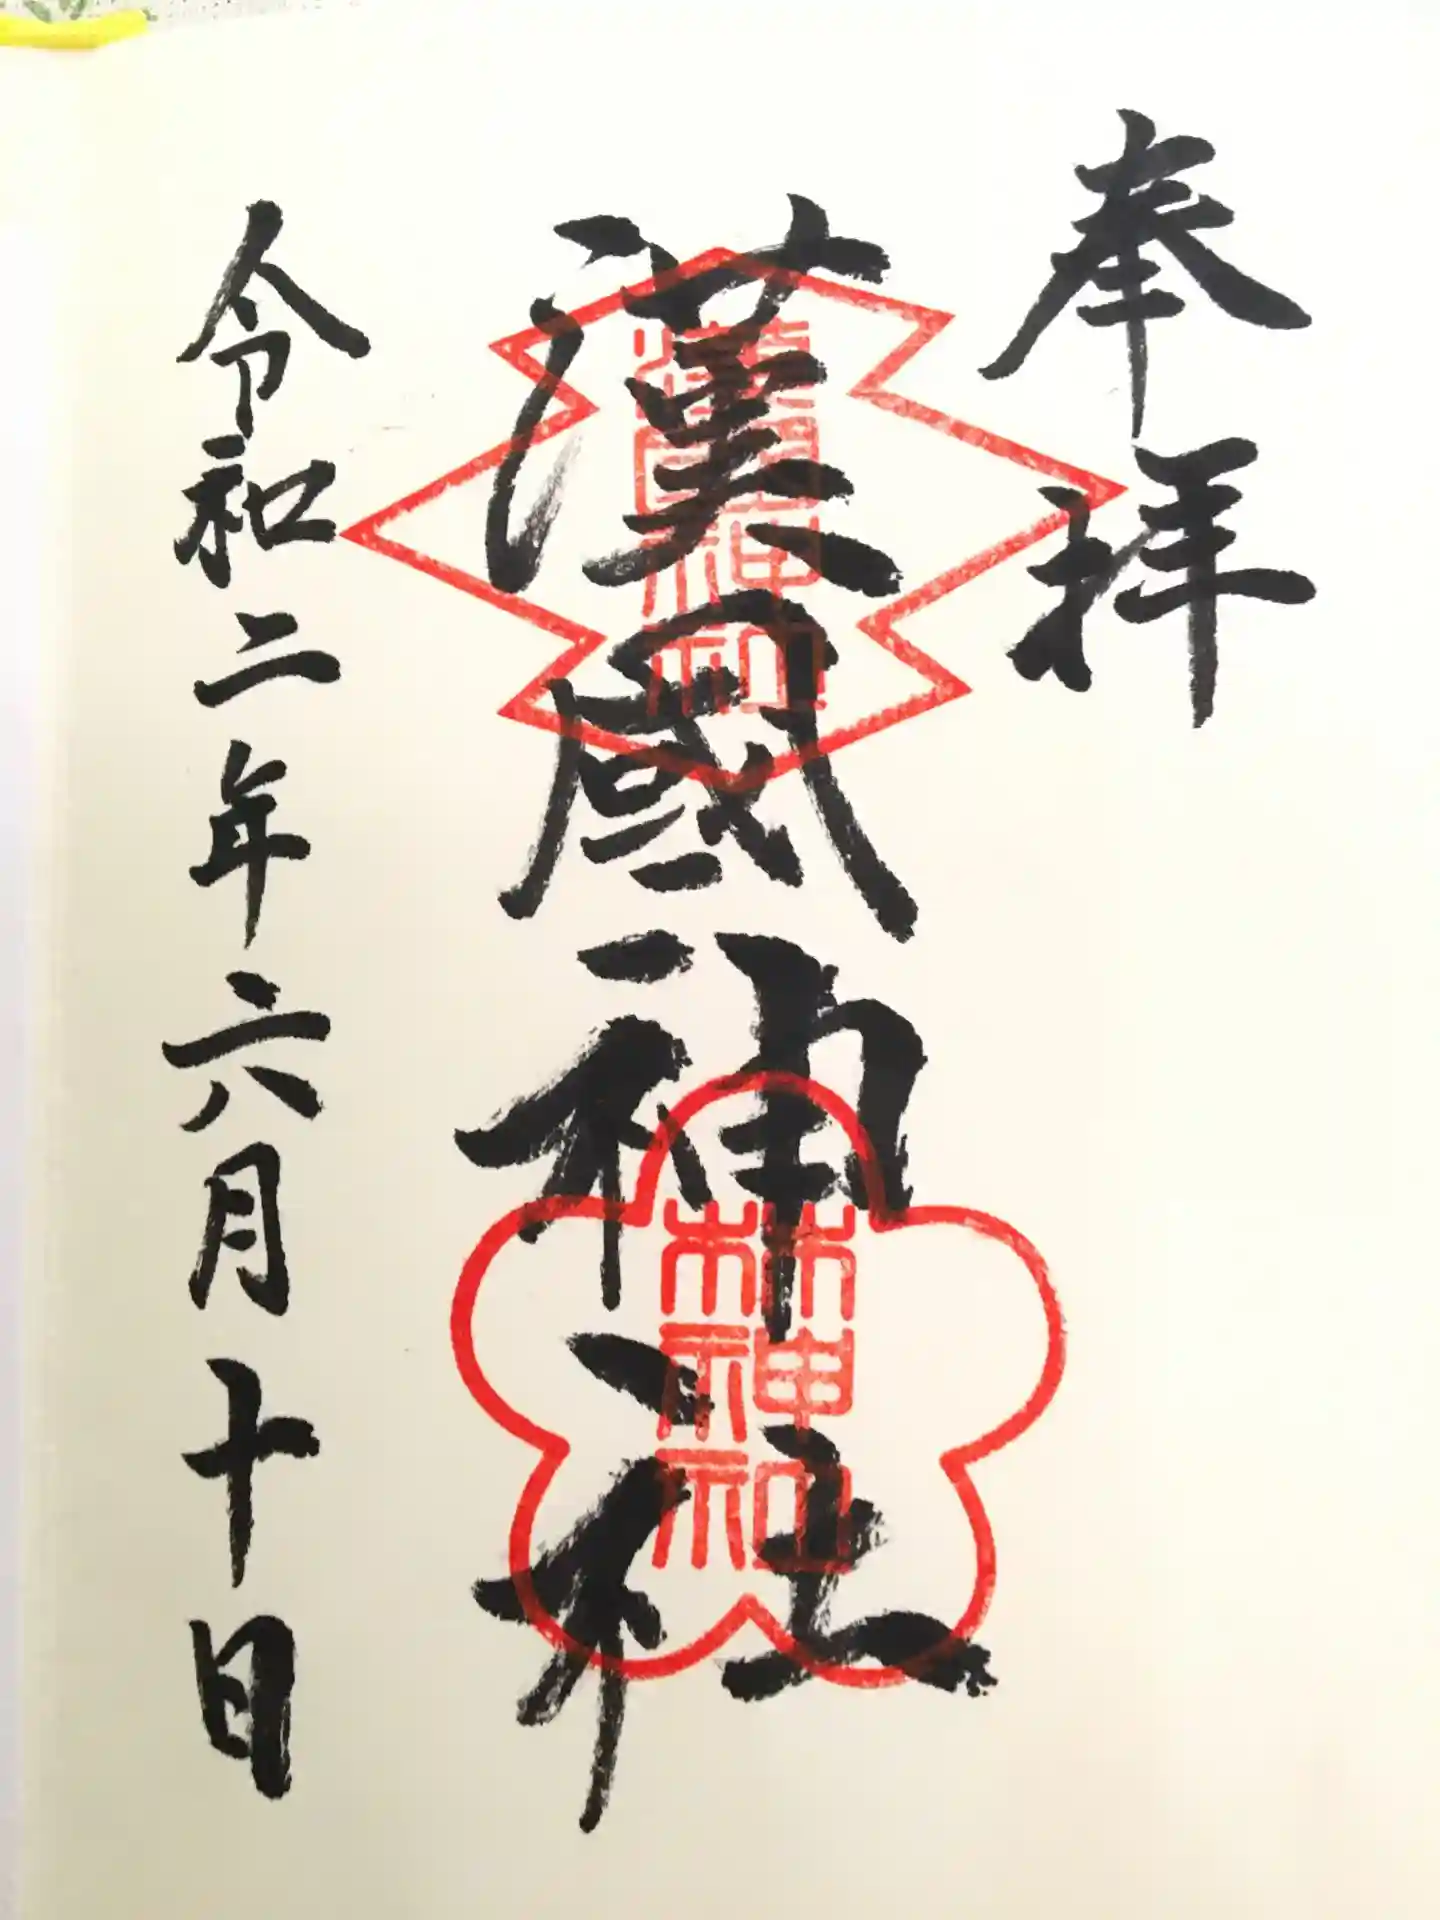 奉拝
漢國神社
令和二年六月十日
漢國神社
林神社